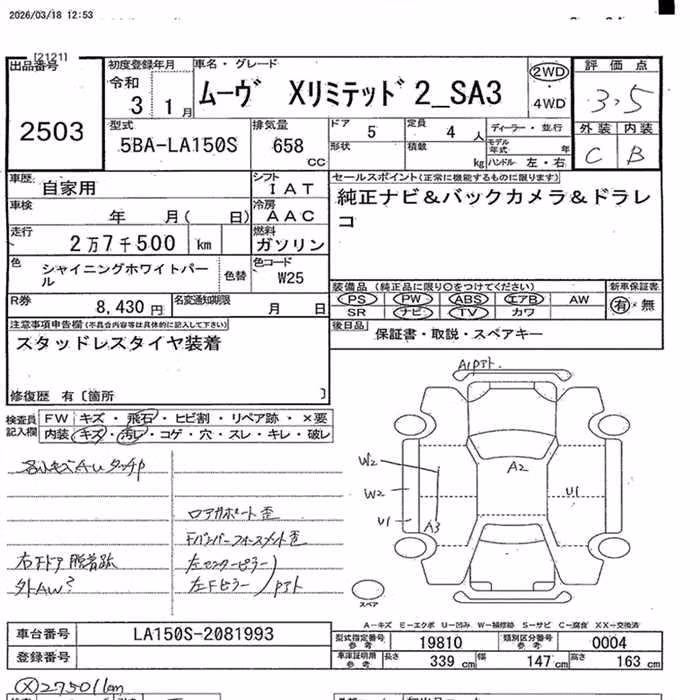 2026/03/18 12:53
[2121]
出品番号
2503
初度登録年月
令和
3 1月
車名・グレード
ムーヴ Xリミテッド2_SA3
2WD
・
4WD
評価点
3.5
外装 内装
C B
型式
5BA-LA150S
排気量
658
CC
ドア
5
定員
4 人
ディーラー・並行
形状
積載
kg
モデル年式 年
ハンドル 左・右
車歴
自家用
シフト
IAT
セールスポイント(正常に機能するものに限ります)
純正ナビ&バックカメラ&ドラレ
コ
車検
年 月( 日)
冷房
AAC
走行
2万7千500 km
燃料
ガソリン
色
シャイニングホワイトパール
色替
色コード
W25
装備品(純正品に限り○をつけてください)
新車保証書
PS PW ABS エアB AW
SR ナビ TV カワ
有・無
R券
8,430円
名変通知期限
月 日
後日品
保証書・取説・スペアキー
注意事項申告欄(不具合内容等は具体的に記入して下さい)
スタッドレスタイヤ装着
修復歴 有〔箇所 〕
検査員
記入欄
FW キズ・飛石・ヒビ割・リペア跡・×要
内装 キズ・汚レ・コゲ・穴・スレ・キレ・破レ
A1Pアト.
W2
W2
U1
A3
A2
U1
ロアサポート歪
左センターピラー
左Fピラー
Pアト
右Fドア脱着跡
外AW?
スペア
A－キズ E－エクボ U－凹み W－補修跡 S－サビ C－腐食 XX－交換済
車台番号
LA150S-2081993
登録番号
型式指定番号
参考
19810
類別区分番号
参考
0004
車庫証明用
参考
長さ 339 cm
幅 147 cm
高さ 163 cm
Ⓧ27501km